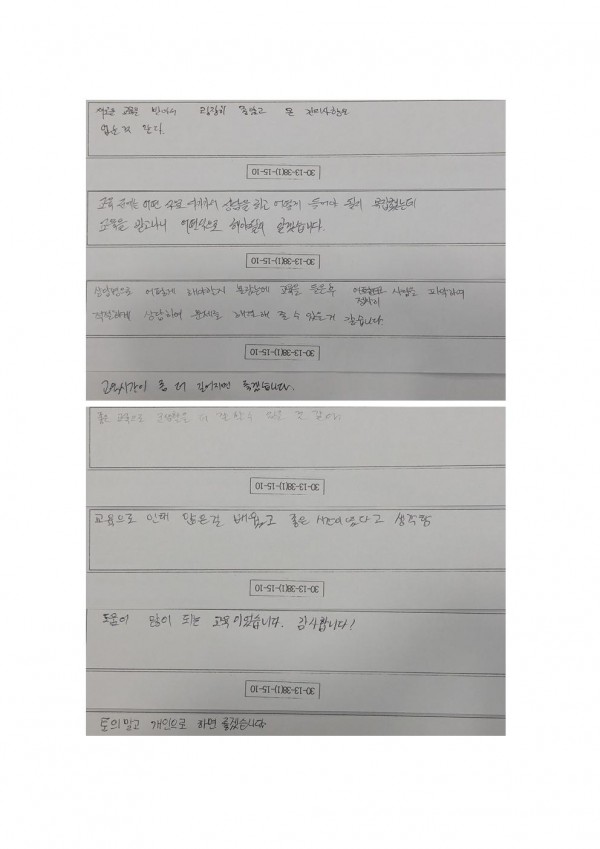 교육을 받아서 굉장히 좋았고
없는것 같다.
30-13-38(1)-15-10
교육 전에는 어떤 식으로 상담을 하고 어떻게 들어야 할지 몰랐는데
교육을 받고나니 어떤식으로 해야할지 알겠습니다.
30-13-38(1)-15-10
상담병으로 어떻게 해야할지 교육을 들은후 사항을 파악하여
적절하게 상담하여 문제를 해결해 줄 수 있을거 같습니다.
30-13-38(1)-15-10
교육시간이 좀 더 길어지면 좋겠습니다.
좋은 교육으로 더 잘 할 수 있을 것 같다
30-13-38(1)-15-10
교육으로 인해 많은걸 배웠고 좋은 시간이였다고 생각함
30-13-38(1)-15-10
도움이 많이 되는 교육이었습니다. 감사합니다!
30-13-38(1)-15-10
토의말고 개인으로 하면 좋겠습니다